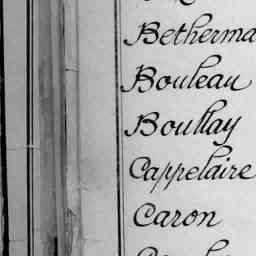 Betherma
Bouleau
Boullay
Cappelaire
Caron